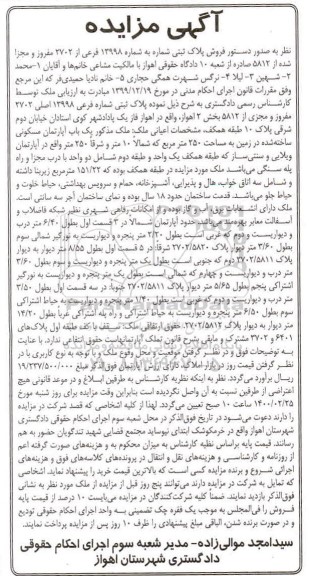 آگهی مزایده
نظر به صدور دستور فروش پلاک ثبتی شماره به شماره ۱۳۹۹۸ فرعی از ۲۷۰۲ مفروز و مجزا
شده از ۵۸۱۲ صادره از شعبه ۱۰ دادگاه حقوقی اهواز با مالکیت مشاعی خانم‌ها و آقایان ۱-محمد
۲- شهین ۳- لیلا ۴- نرگس شهرت همگی حجاری ۵- خانم نادیا حمیدی‌فر که این مرجع
وفق مقررات قانون اجرای احکام مدنی در مورخ ۱۳۹۹/۱۲/۱۹ مبادرت به ارزیابی ملک توسط
کارشناس رسمی دادگستری به شرح ذیل نموده پلاک ثبتی شماره فرعی ۱۳۹۹۸ اصلی ۲۷۰۲
مفروز و مجزی از ۵۸۱۲ بخش ۲ اهواز، واقع در اهواز فاز یک پادادشهر کوی استادان خیابان دوم
شرقی پلاک ۱۰ طبقه همکف، مشخصات اعیانی ملک: ملک مذکور یک باب آپارتمان مسکونی
ساخته‌شده در زمین به مساحت ۲۵۰ متر مربع که شمالا ۱۰ متر و شرقا ۲۵ متر واقع در آپارتمان
ویلایی و سنتی‌ساز که طبقه همکف یک واحد و طبقه دوم شامل دو واحد با درب مجزا و راه
پله سنگی می‌باشد. ملک مورد مزایده در طبقه همکف بوده که ۱۵۱/۲۲ مترمربع زیربنا داشته
و شامل سه اتاق خواب، هال و پذیرایی، آشپزخانه، حمام و سرویس بهداشتی، حیاط خلوت و
حیاط جلو می‌باشد. قدمت ساختمان حدود ۱۸ سال بوده و نمای ساختمان آجر سه سانتی است.
ملک دارای انشعابات برق، آب و گاز بوده و از امکانات رفاهی شهری نظیر شبکه فاضلاب و
آسفالت معابر بهره‌مند می‌باشد. حدود آپارتمان شمالا در ۲ قسمت اول بطول ۶/۴۰ متر درب
و دیواریست و دوم که غربی است بطول ۲/۲۰ متر پنجره و دیواریست به نورگیر شمالی سوم
بطول ۳/۶۰ متر دیوار پلاک ۲۷۰۲/۵۸۲۰ شرقا: در ۵ قسمت اول بطول ۸/۵۵ متر دیوار به دیوار
پلاک ۲۷۰۲/۵۸۱۱ دوم که جنوبی است بطول یک متر پنجره و دیواریست و سوم بطول ۳/۶۰
متر درب و دیواریست و چهارم که شمالی است بطول یک متر پنجره و دیواریست به نورگیر
اشتراکی پنجم بطول ۵/۶۵ متر دیوار پلاک ۲۷۰۲/۵۸۱۱ جنوبا: در سه قسمت اول بطول ۳/۵۰
متر درب و دیواریست و دوم که غربی است بطول یک متر پنجره و دیواریست به حیاط اشتراکی
سوم بطول ۶/۵۰ متر پنجره و دیواریست به حیاط اشتراکی و راه پله اشتراکی غربا بطول ۱۴/۲۰
متر دیوار به دیوار پلاک ۲۷۰۲/۵۸۱۲ حقوق ارتفاقی ملک: سقف با کف طبقه اول پلاک‌های
۶۴۰۱ و ۲۷۰۲ مشترک و مابقی بشرح قانون تملک آپارتمانهاست حقوق انتفاعی ندارد. با عنایت
به توضیحات فوق و در نظر گرفتن موقعیت و محل وقوع ملک و با توجه به نوع کاربری با در
نظر گرفتن قیمت روز در بازار املاک، دارای ارزش آپارتمان فوق‌الذکر مبلغ ۱۹/۲۳۷/۵۰۰/۰۰۰
ریال برآورد می‌گردد. نظر به اینکه نظریه کارشناس به طرفین ابلاغ و در موعد قانونی هیچ
اعتراضی از طرفین نسبت به آن واصل نگردیده است بنابراین وقت مزایده برای روز شنبه مورخ
۱۴۰۰/۰۲/۲۵ ساعت ۱۰ صبح تعیین می‌گردد. لهذا از کلیه اشخاصی که قصد شرکت در مزایده
را دارند دعوت می‌شود در تاریخ فوق‌الذکر در محل شعبه سوم اجرای احکام حقوقی دادگستری
شهرستان اهواز واقع در خرمکوشک ابتدای نیوساید مجتمع قضایی شهید تندگویان حضور به هم
رسانند. قیمت پایه براساس نظریه کارشناس به میزان محکوم به و هزینه‌های صورت گرفته اعم
از روزنامه و کارشناسی و هزینه‌های نقل و انتقال در پرونده‌های کلاسه‌های فوق و هزینه‌های
اجرائی شروع و برنده مزایده کسی است که بالاترین قیمت خرید را پیشنهاد نماید. اشخاصی
که تمایل به شرکت در مزایده دارند می‌توانند پنج روز قبل از مزایده از ملک مورد نظر به نشانی
فوق‌الذکر بازدید نمایند. ضمنا کلیه شرکت‌کنندگان در مزایده می‌بایست ۱۰ درصد از قیمت پایه
فروش را فی‌المجلس به موجب یک فقره چک تضمینی به واحد اجرای احکام حقوقی تودیع
و در صورت برنده شدن، الباقی مبلغ پیشنهادی را ظرف ۱۰ روز پس از مزایده پرداخت نمایند.
سیدامجد موالی‌زاده- مدیر شعبه سوم اجرای احکام حقوقی
دادگستری شهرستان اهواز